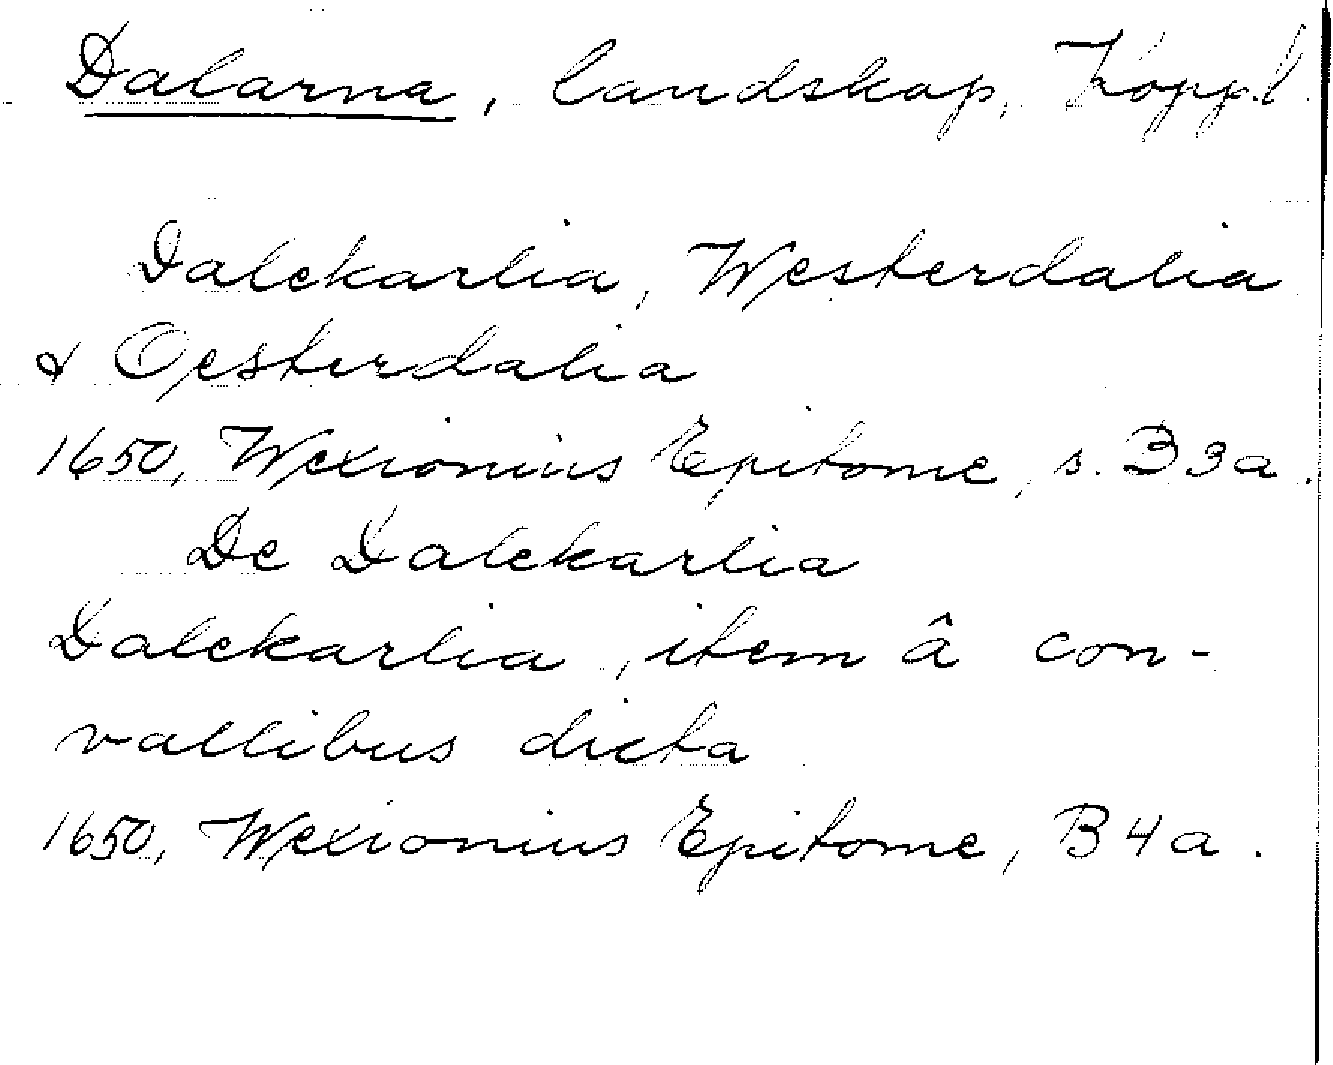 Dalarna, landskap, Kopp.l.
Dalekarlia, Westerdalia
& Oesterdalia
1650, Wexionius Epitome, s. B3a.
De Dalekarlia
Dalekarlia, item â con-
vallibus dicta
1650, Wexionius Epitome, B4a.